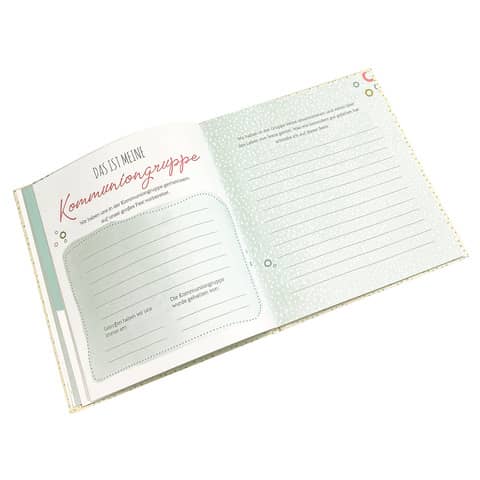 DAS IST MEINE
Kommuniongruppe
Wir haben uns in der Kommuniongruppe gemeinsam
auf unser großes Fest vorbereitet.
Getroffen haben wir uns
immer am:
Die Kommuniongruppe
wurde gehalten von:
Wir haben in der Gruppe etwas über
das Leben von Jesus gelernt. Was mir besonders gut gefallen hat
schreibe ich auf dieser Seite.